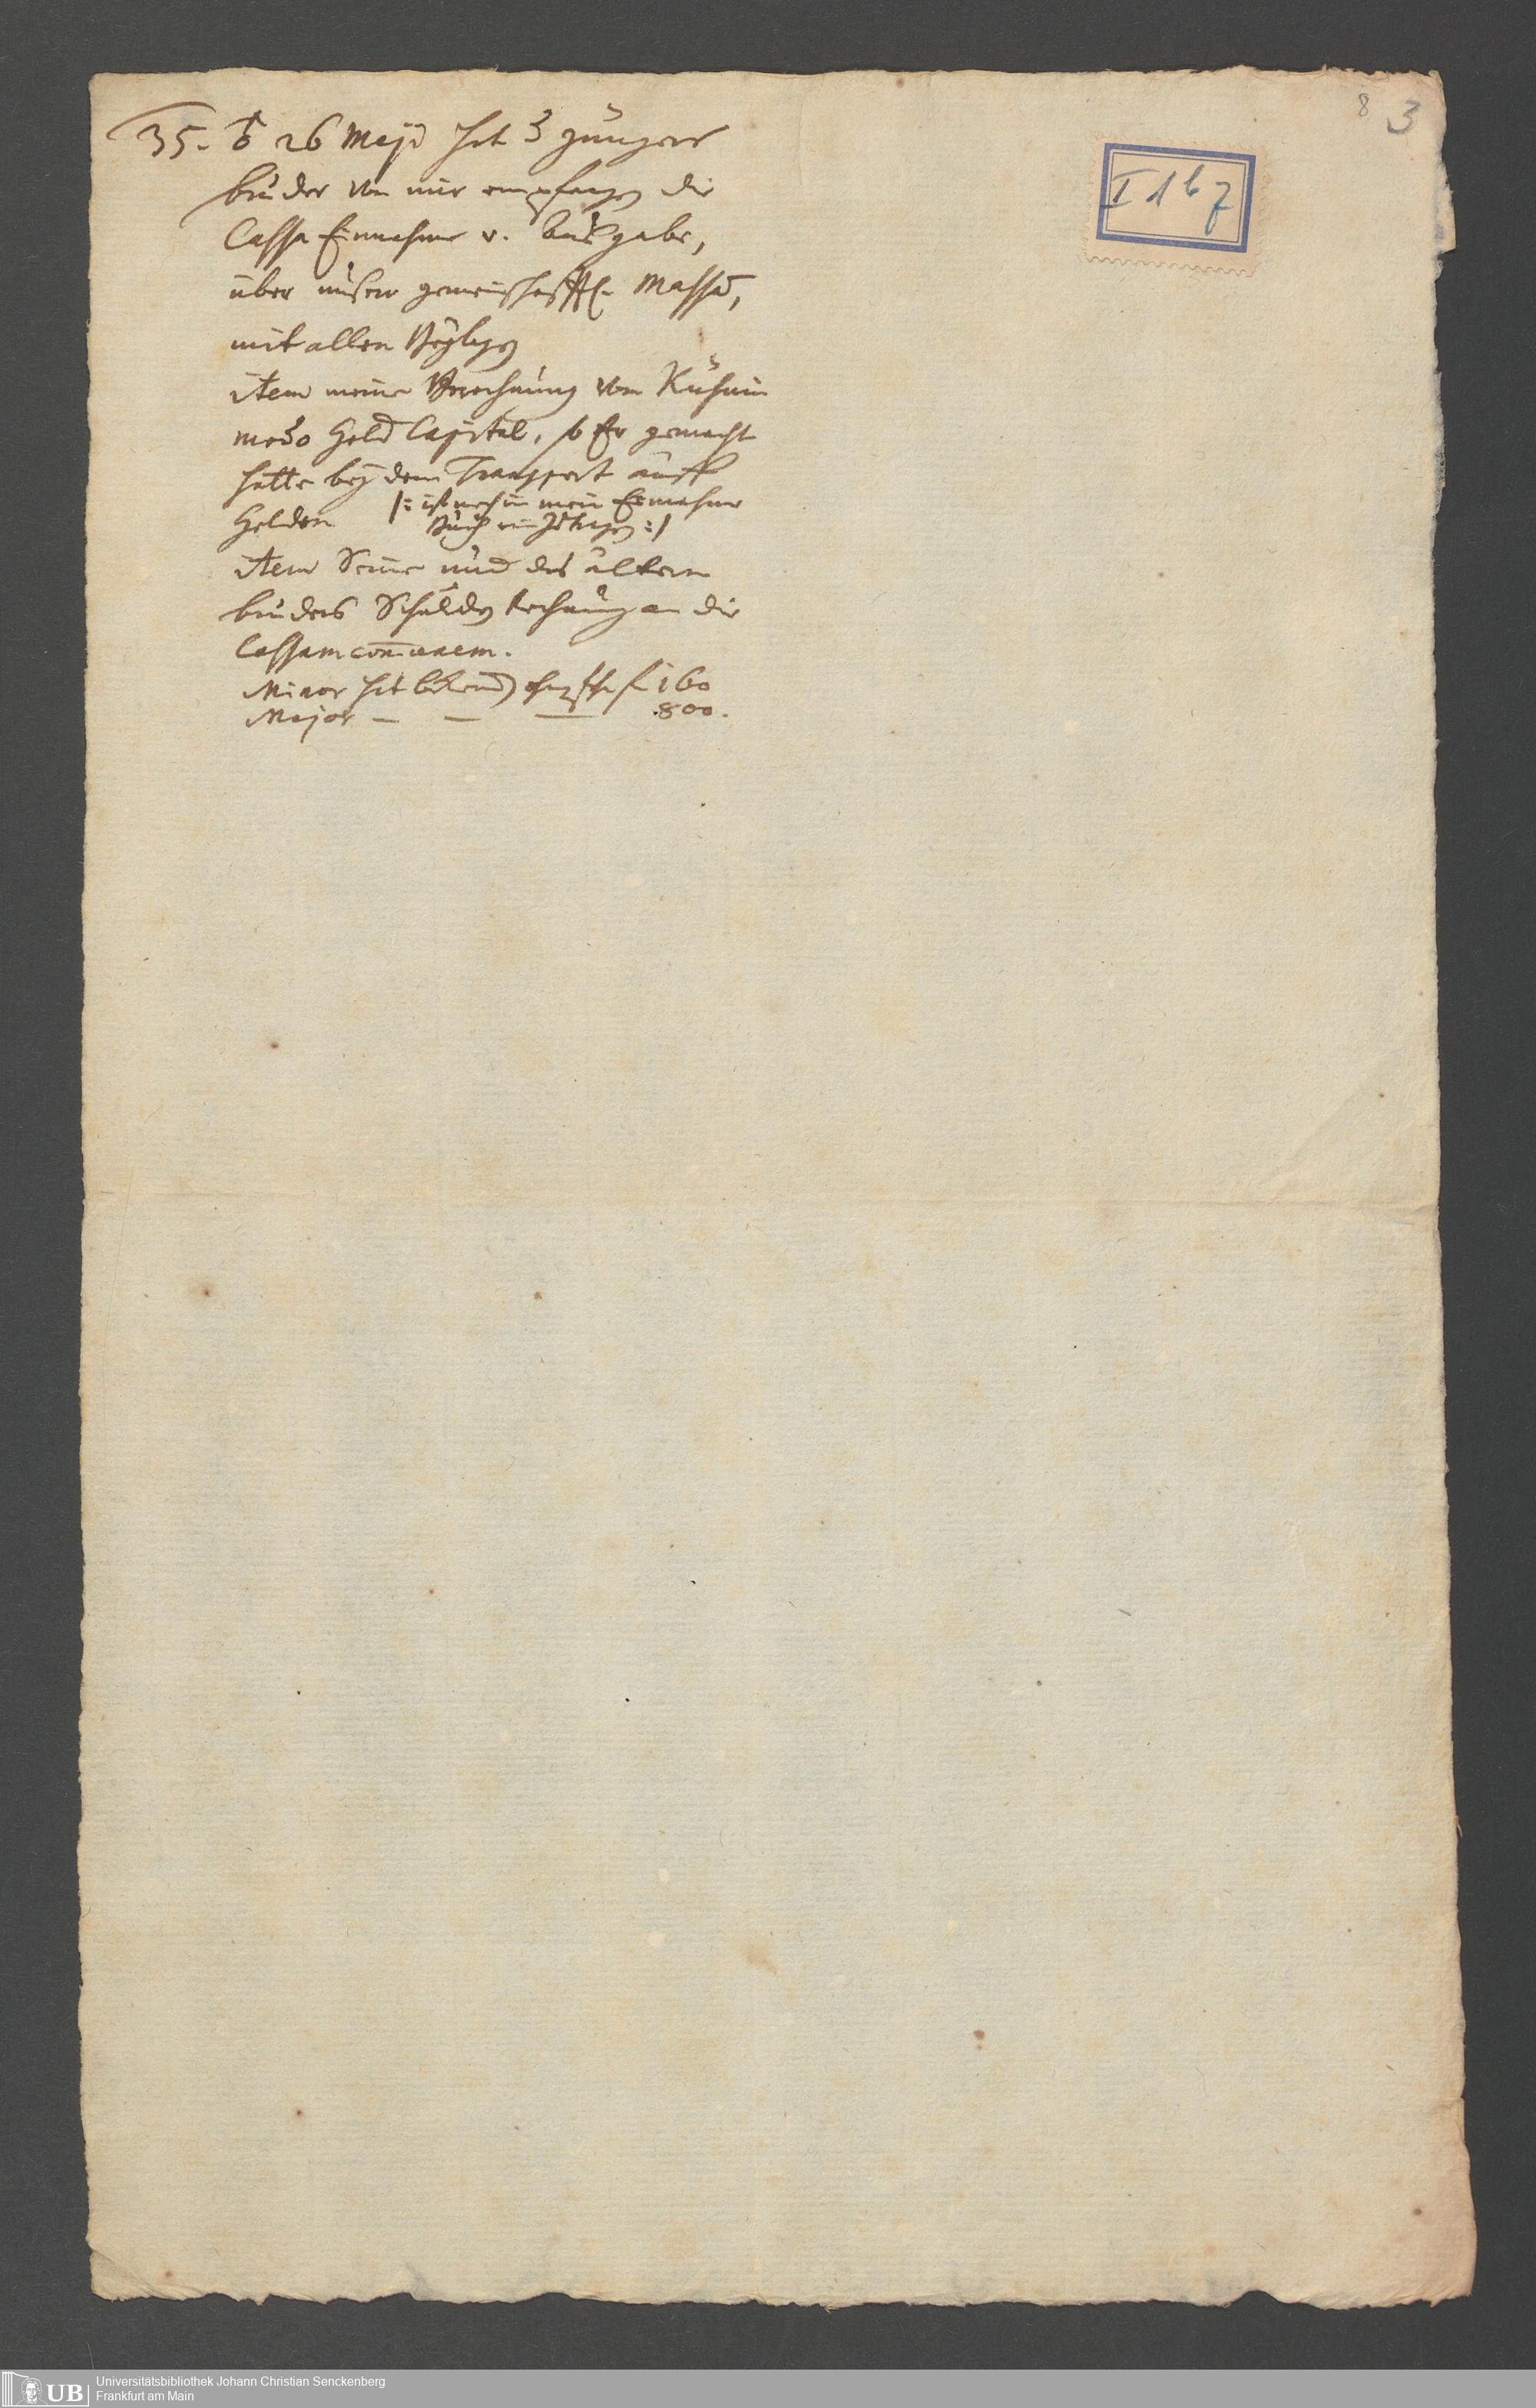 8 3
I 1 b 7
35. ♂ 26 Maji hat jüngerer
bruder von mir empfangen die
Cassa Einnahme v. Ausgabe,
über unsere gemeinschafftl. Massa,
mit allen Beylagen
item meine Berechnung von
Geld Capital, so Er gemacht
hatte bey dem Transport auff
Gelden /: ist noch in mein Einnahme
Buch :/
item Seine und des ältern
bruders Schulden Rechnung an die
Cassam com̄unem.
Minor hat f 160
Major — — — 800.
UB Universitätsbibliothek Johann Christian Senckenberg
Frankfurt am Main